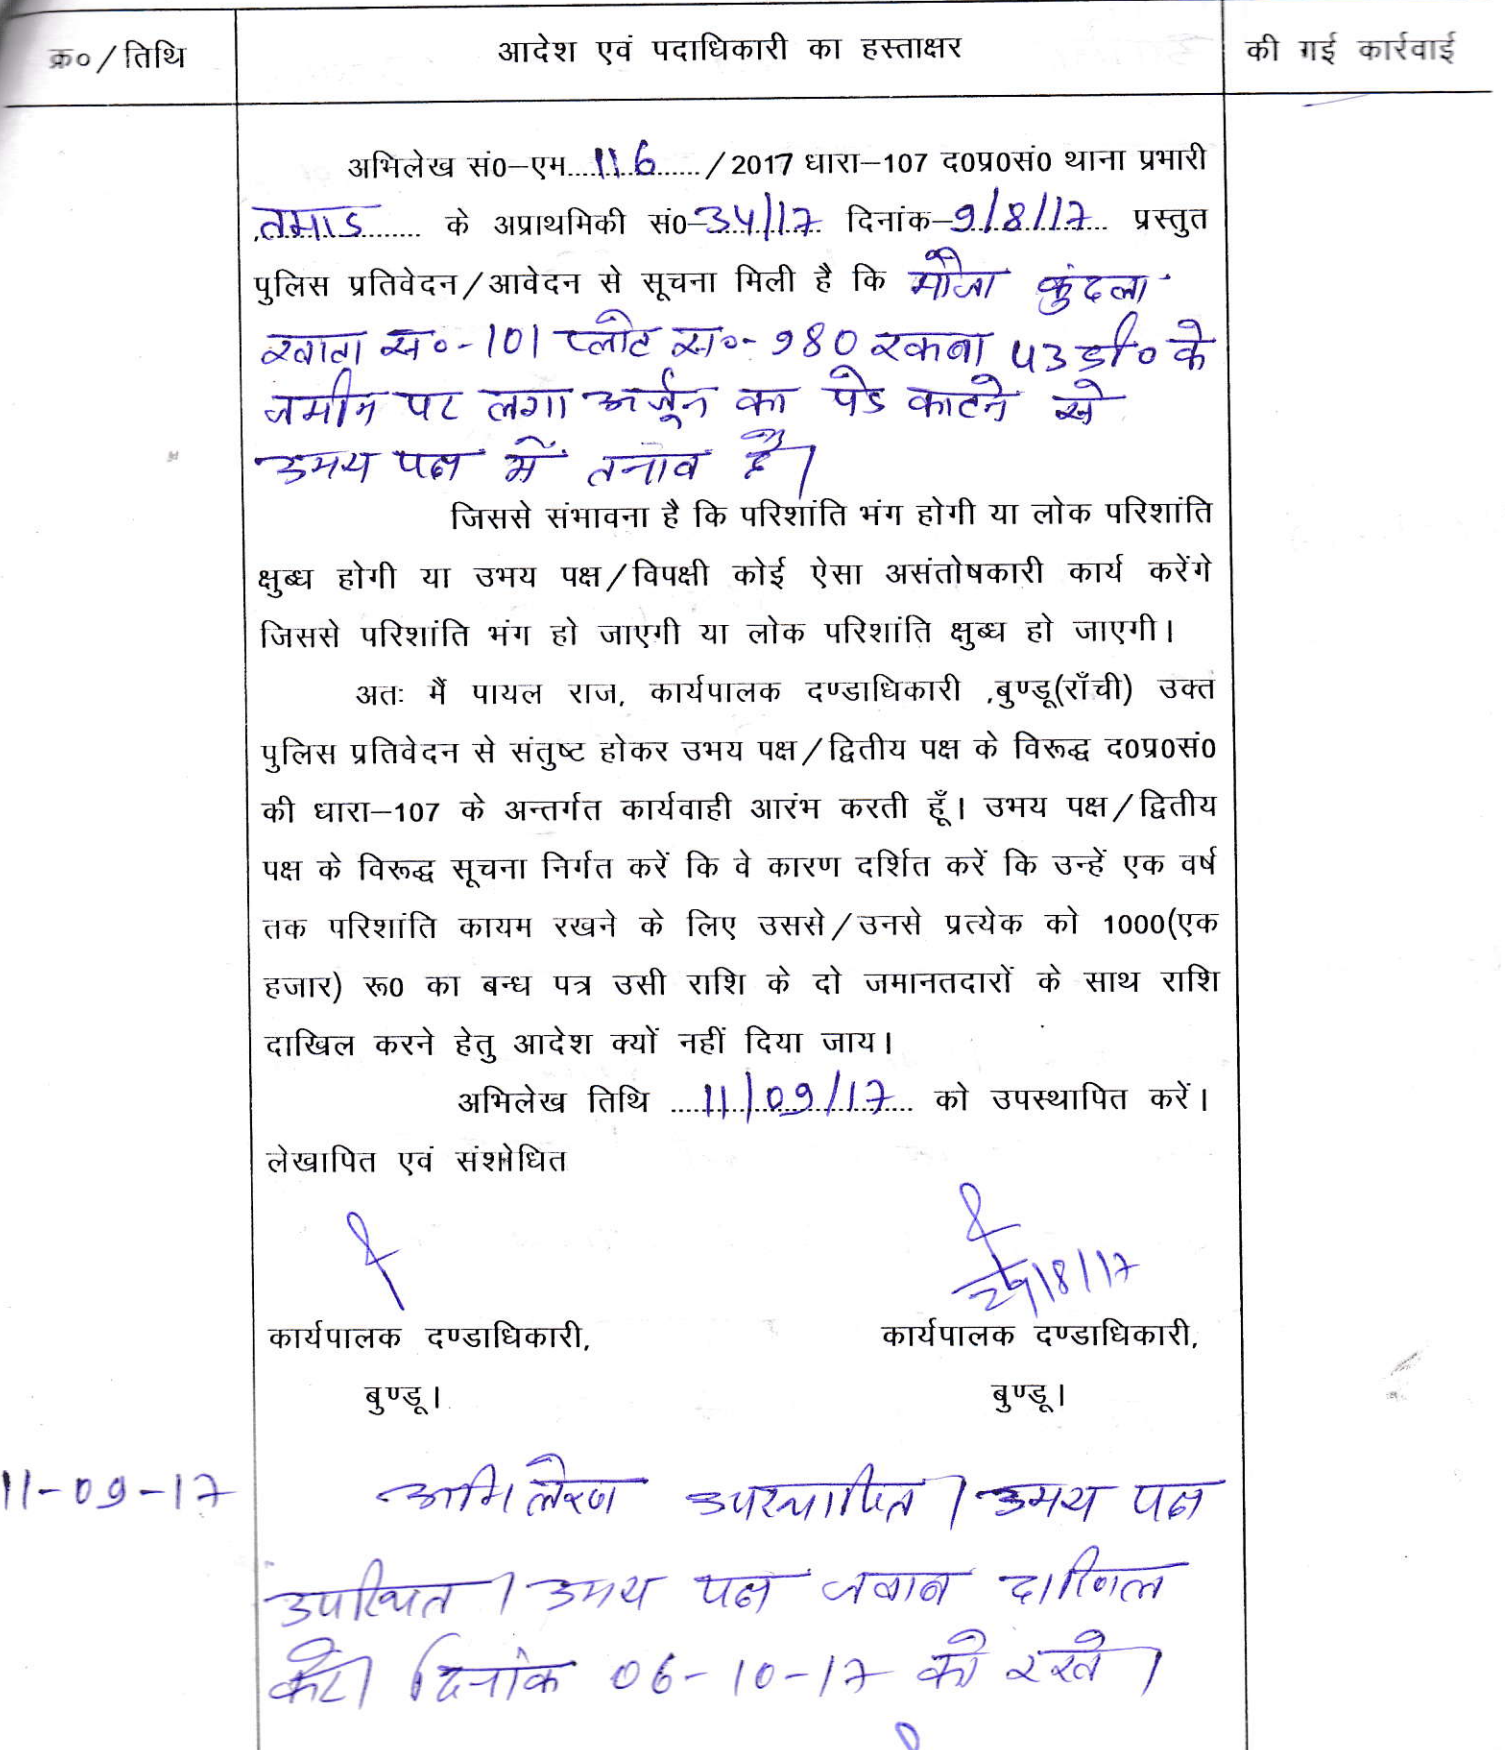 क्र० / तिथि
आदेश एवं पदाधिकारी का हस्ताक्षर
की गई कार्रवाई
अभिलेख सं0–एम....116....... / 2017 धारा–107 द0प्र0सं0 थाना प्रभारी
तमाड ........ के अप्राथमिकी सं0–34/17 दिनांक–9/8/17.. प्रस्तुत
पुलिस प्रतिवेदन / आवेदन से सूचना मिली है कि मौजा कुंदला
खाता स०-101 प्लॉट स०- 980 रकबा 43 डी० के
जमीन पर लगा अर्जून का पेड काटने से
उभय पक्ष में तनाव है।
जिससे संभावना है कि परिशांति भंग होगी या लोक परिशांति
क्षुब्ध होगी या उभय पक्ष / विपक्षी कोई ऐसा असंतोषकारी कार्य करेंगे
जिससे परिशांति भंग हो जाएगी या लोक परिशांति क्षुब्ध हो जाएगी।
अतः मैं पायल राज, कार्यपालक दण्डाधिकारी ,बुण्डू(राँची) उक्त
पुलिस प्रतिवेदन से संतुष्ट होकर उभय पक्ष / द्वितीय पक्ष के विरूद्ध द0प्र0सं0
की धारा–107 के अन्तर्गत कार्यवाही आरंभ करती हूँ। उभय पक्ष / द्वितीय
पक्ष के विरूद्ध सूचना निर्गत करें कि वे कारण दर्शित करें कि उन्हें एक वर्ष
तक परिशांति कायम रखने के लिए उससे / उनसे प्रत्येक को 1000(एक
हजार) रू0 का बन्ध पत्र उसी राशि के दो जमानतदारों के साथ राशि
दाखिल करने हेतु आदेश क्यों नहीं दिया जाय।
अभिलेख तिथि ....11/09/17.. को उपस्थापित करें।
लेखापित एवं संशोधित
29/8/17
कार्यपालक दण्डाधिकारी, कार्यपालक दण्डाधिकारी,
बुण्डू। बुण्डू।
11-09-17 अभिलेख उपस्थापित। उभय पक्ष
उपस्थित। उभय पक्ष जबाब दाखिल
करें। दिनांक 06-10-17 को रखें।